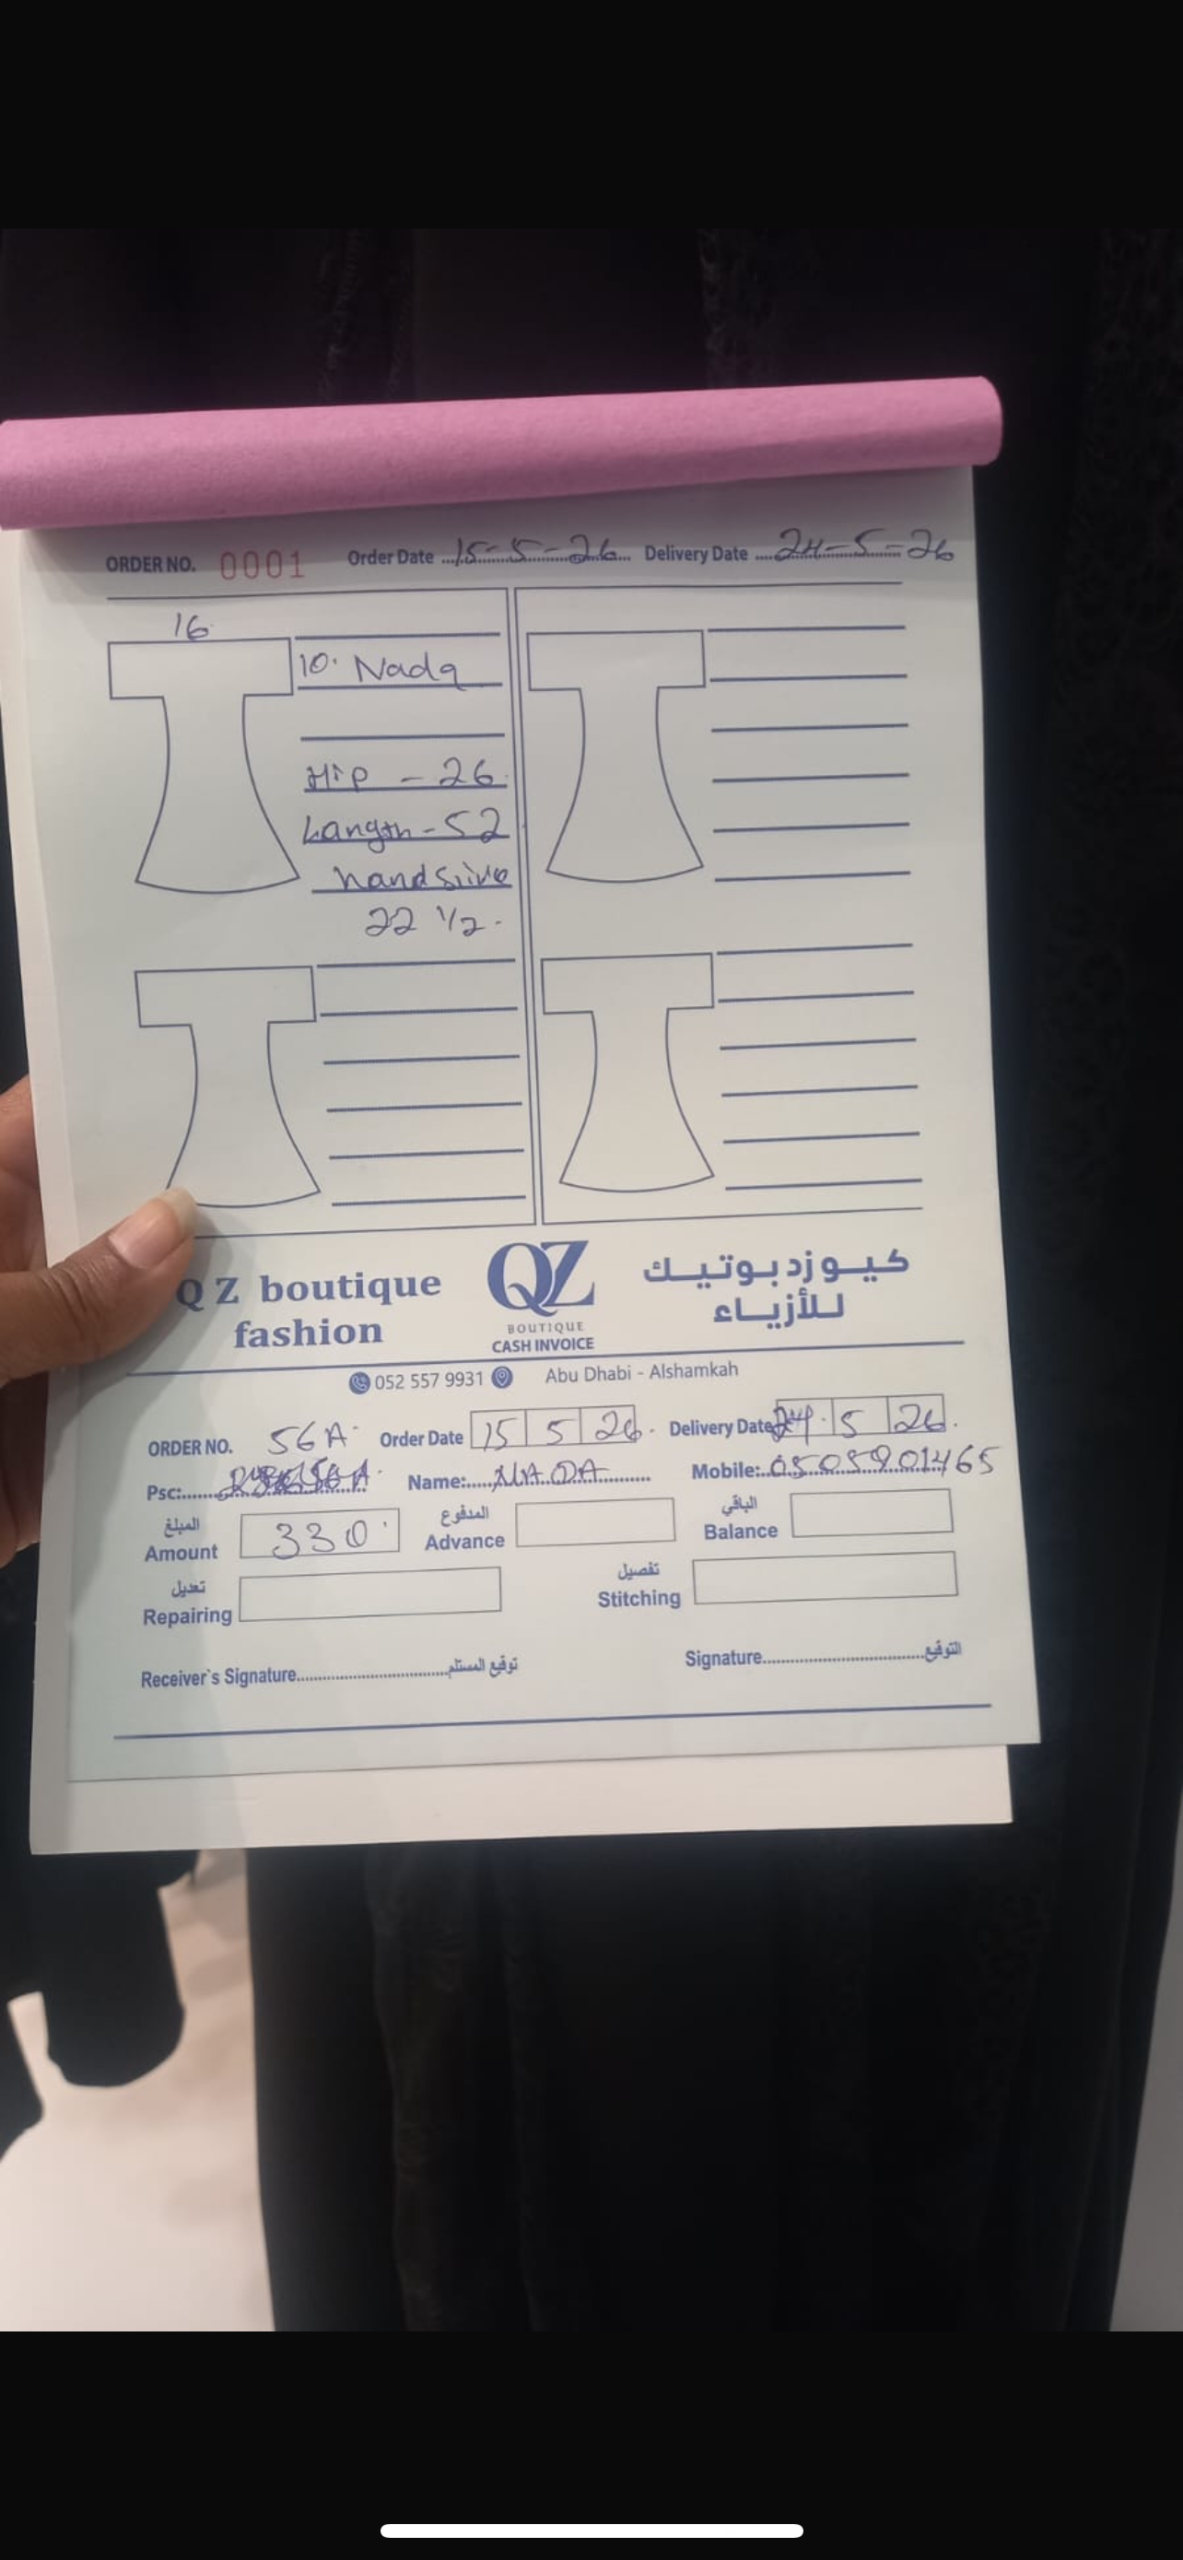 ORDER NO. 0001 Order Date 15-5-26 Delivery Date 24-5-26
16
10. Nada
Hip - 26
Langth - 52
hand slive
22 1/2.
Q Z boutique
fashion
QZ
BOUTIQUE
CASH INVOICE
كيو زد بوتيك
للأزياء
052 557 9931 Abu Dhabi - Alshamkah
ORDER NO. 56A Order Date 15 5 26 Delivery Date 24 5 26
Psc: Name: NADA Mobile: 0505901465
المبلغ المدفوع الباقي
Amount 330 Advance Balance
تعديل تفصيل
Repairing Stitching
Receiver`s Signature توقيع المستلم Signature التوقيع